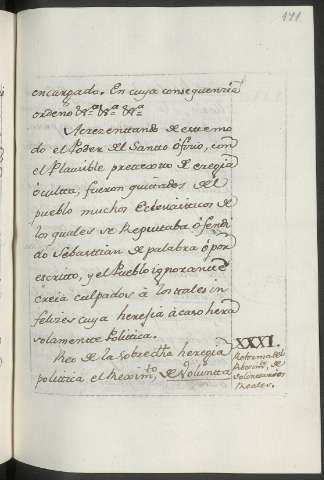 171.
encargado. En cuya consequenzia
ordenò V.ª V.ª V.ª
Acrezenttando de estremo
do el Poder del Santto ofizio, con
el Plauvible prettextto de eregia
òcultta, fueron quittados del
pueblo muchos Eclesiasticos de
los quales se Reputtaba òfendi
do Sebasttian de palabra òpor
escritto, y el Pueblo ignorantte
creia culpados à los ttales in
felizes cuya heregia àcaso hera
solamentte Polittica.
Reo de la sobredha heregia
polittica el Rexim.to de Voluntta
XXXI.
Reforma del
Rexim.to de
Volunttarios
Reales.